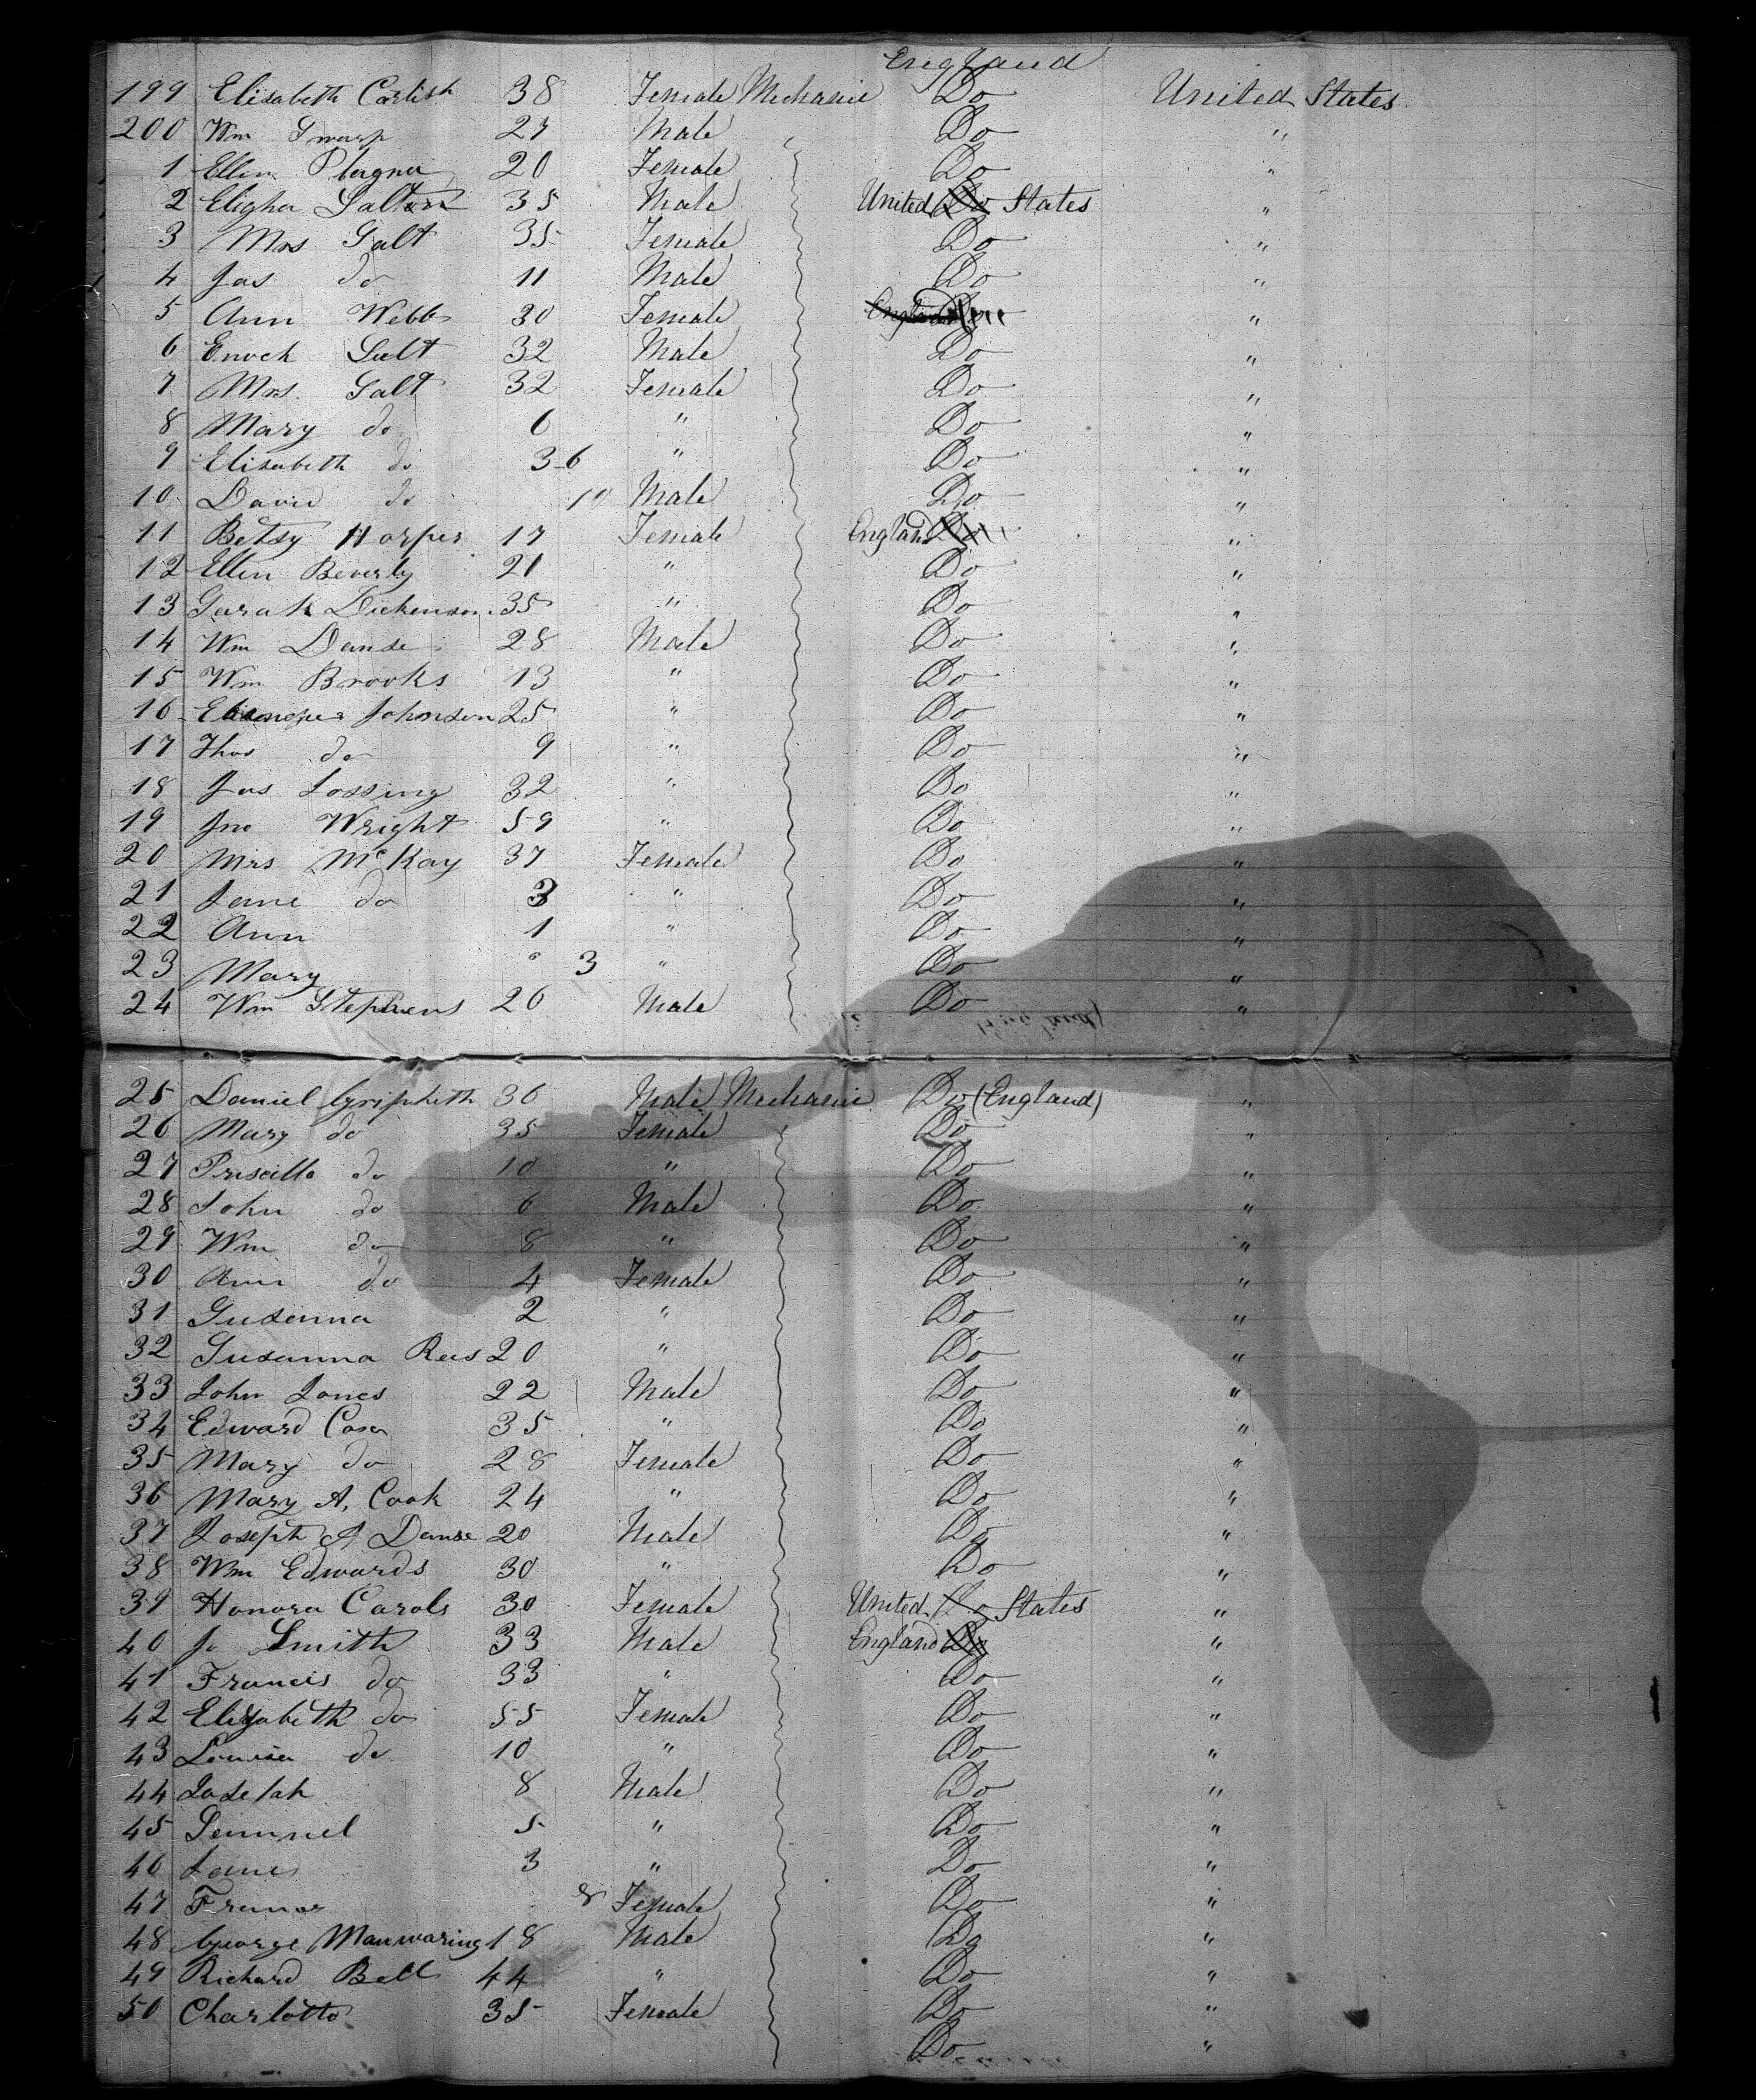 England
199 Elisabeth Corlish 38 Female Mechanic Do United States
200 Wm 27 Male Do "
1 Ellin 20 Female Do "
2 Eligha Salt 35 Male United Do States "
3 Mrs Salt 35 Female Do "
4 Jas do 11 Male Do "
5 Ann Webb 30 Female England Do "
6 Enoch Salt 32 Male Do "
7 Mrs. Salt 32 Female Do "
8 Mary do 6 " Do "
9 Elisabeth do 3-6 " Do "
10 David do 10 Male Do "
11 Betsy Harper 17 Female England Do "
12 Ellen Beverly 21 " Do "
13 Sarah Dickenson 35 " Do "
14 Wm Danse 28 Male Do "
15 Wm Brooks 13 " Do "
16 Johnson 25 " Do "
17 Thos do 9 " Do "
18 Jas Lossing 32 " Do "
19 Jno Wright 59 " Do "
20 Mrs McKay 37 Female Do "
21 Jane do 3 " Do "
22 Ann 1 " Do "
23 Mary " 3 " Do "
24 Wm Stephens 26 Male Do "
25 Daniel Griphith 36 Male Mechanic Do (England) "
26 Mary do 35 Female Do "
27 Priscilla do 10 " Do "
28 John do 6 Male Do "
29 Wm do 8 " Do "
30 Ann do 4 Female Do "
31 Susanna 2 " Do "
32 Susanna Rees 20 " Do "
33 John Jones 22 Male Do "
34 Edward Casa 35 " Do "
35 Mary do 28 Female Do "
36 Mary A, Cook 24 " Do "
37 Joseph A Danse 20 Male Do "
38 Wm Edwards 30 " Do "
39 Honora Carols 30 Female United Do States "
40 Jo Smith 33 Male England Do "
41 Francis do 33 " Do "
42 Elizabeth do 55 Female Do "
43 Louisa do 10 " Do "
44 Joseph 8 Male Do "
45 Semunel 5 " Do "
46 James 3 " Do "
47 8 Female Do "
48 George Manwaring 18 Male Do "
49 Richard Bell 44 " Do "
50 Charlotte 35 Female Do "
Do "